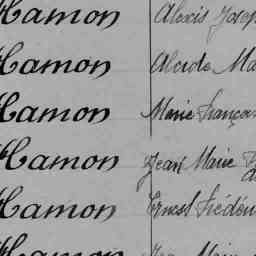 Hamon Alexis Josep
Hamon Alcide Ma
Hamon Marie Françoi
Hamon Jean Marie
Hamon Ernest Frédér
Hamon Marie